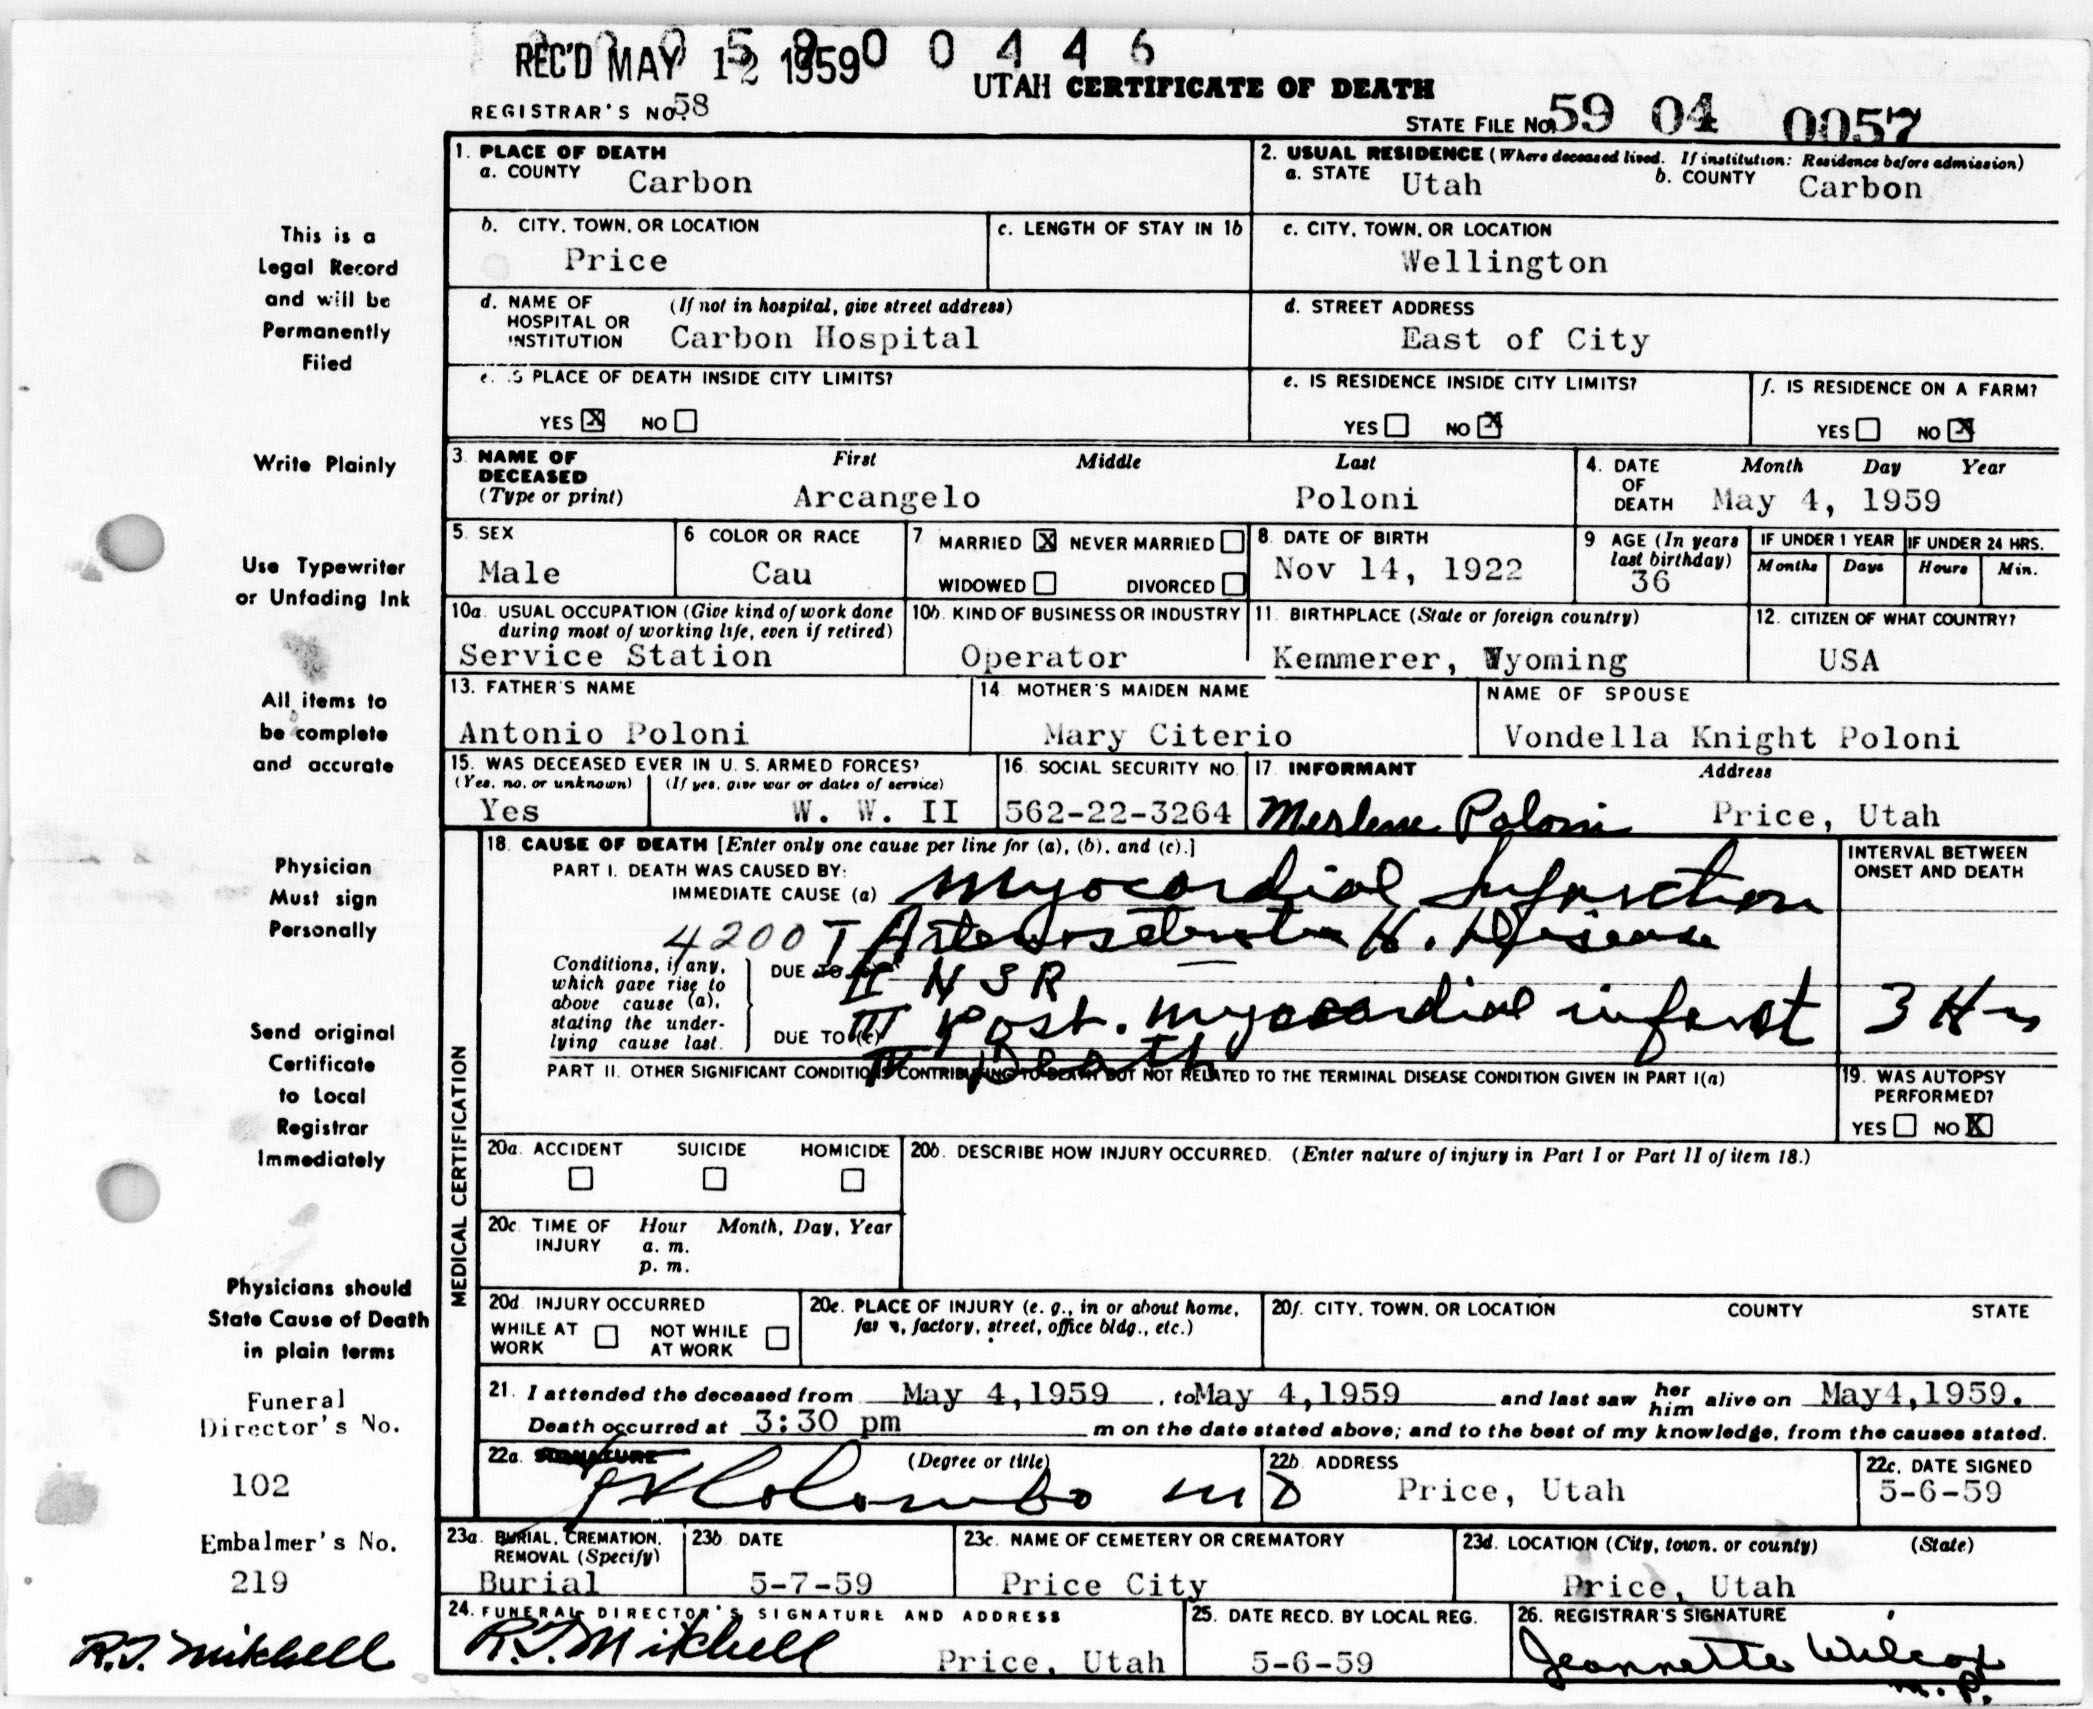 REC'D MAY 12 1959 0 0 4 4 6
UTAH CERTIFICATE OF DEATH
REGISTRAR'S NO. 58
STATE FILE NO. 59 04 0057
1. PLACE OF DEATH
a. COUNTY Carbon
2. USUAL RESIDENCE (Where deceased lived. If institution: Residence before admission)
a. STATE Utah b. COUNTY Carbon
b. CITY, TOWN, OR LOCATION
Price
c. LENGTH OF STAY IN 1b
c. CITY, TOWN, OR LOCATION
Wellington
d. NAME OF HOSPITAL OR INSTITUTION (If not in hospital, give street address)
Carbon Hospital
d. STREET ADDRESS
East of City
e. IS PLACE OF DEATH INSIDE CITY LIMITS?
YES X NO
e. IS RESIDENCE INSIDE CITY LIMITS?
YES NO X
f. IS RESIDENCE ON A FARM?
YES NO X
3. NAME OF DECEASED (Type or print) First Middle Last
Arcangelo Poloni
4. DATE OF DEATH Month Day Year
May 4, 1959
5. SEX
Male
6 COLOR OR RACE
Cau
7 MARRIED X NEVER MARRIED
WIDOWED DIVORCED
8. DATE OF BIRTH
Nov 14, 1922
9 AGE (In years last birthday)
36
IF UNDER 1 YEAR
Months Days
IF UNDER 24 HRS.
Hours Min.
10a. USUAL OCCUPATION (Give kind of work done during most of working life, even if retired)
Service Station
10b. KIND OF BUSINESS OR INDUSTRY
Operator
11. BIRTHPLACE (State or foreign country)
Kemmerer, Wyoming
12. CITIZEN OF WHAT COUNTRY?
USA
13. FATHER'S NAME
Antonio Poloni
14. MOTHER'S MAIDEN NAME
Mary Citerio
NAME OF SPOUSE
Vondella Knight Poloni
15. WAS DECEASED EVER IN U. S. ARMED FORCES?
(Yes, no, or unknown) (If yes, give war or dates of service)
Yes W. W. II
16. SOCIAL SECURITY NO.
562-22-3264
17. INFORMANT Address
Merlene Poloni Price, Utah
MEDICAL CERTIFICATION
18. CAUSE OF DEATH [Enter only one cause per line for (a), (b), and (c).]
PART I. DEATH WAS CAUSED BY:
IMMEDIATE CAUSE (a) Myocardial Infarction
INTERVAL BETWEEN ONSET AND DEATH
4200 I H. Disease
Conditions, if any, which gave rise to above cause (a), stating the underlying cause last.
DUE TO II NSR
DUE TO (c) III Post. myocardial infarct 3 Hrs
IV Death
PART II. OTHER SIGNIFICANT CONDITIONS CONTRIBUTING TO DEATH BUT NOT RELATED TO THE TERMINAL DISEASE CONDITION GIVEN IN PART I(a)
19. WAS AUTOPSY PERFORMED?
YES NO X
20a. ACCIDENT SUICIDE HOMICIDE
20b. DESCRIBE HOW INJURY OCCURRED. (Enter nature of injury in Part I or Part II of item 18.)
20c. TIME OF INJURY Hour Month, Day, Year
a. m.
p. m.
20d. INJURY OCCURRED
WHILE AT WORK NOT WHILE AT WORK
20e. PLACE OF INJURY (e. g., in or about home, farm, factory, street, office bldg., etc.)
20f. CITY, TOWN, OR LOCATION COUNTY STATE
21. I attended the deceased from May 4,1959, to May 4,1959 and last saw her him alive on May4,1959.
Death occurred at 3:30 pm m on the date stated above; and to the best of my knowledge, from the causes stated.
22a. SIGNATURE (Degree or title)
Colombo MD
22b. ADDRESS
Price, Utah
22c. DATE SIGNED
5-6-59
23a. BURIAL, CREMATION, REMOVAL (Specify)
Burial
23b. DATE
5-7-59
23c. NAME OF CEMETERY OR CREMATORY
Price City
23d. LOCATION (City, town, or county) (State)
Price, Utah
24. FUNERAL DIRECTOR'S SIGNATURE AND ADDRESS
R.T. Mitchell Price, Utah
25. DATE RECD. BY LOCAL REG.
5-6-59
26. REGISTRAR'S SIGNATURE
Jeannette Wilcox
M.P.
This is a
Legal Record
and will be
Permanently
Filed
Write Plainly
Use Typewriter
or Unfading Ink
All items to
be complete
and accurate
Physician
Must sign
Personally
Send original
Certificate
to Local
Registrar
Immediately
Physicians should
State Cause of Death
in plain terms
Funeral
Director's No.
102
Embalmer's No.
219
R.T. Mitchell